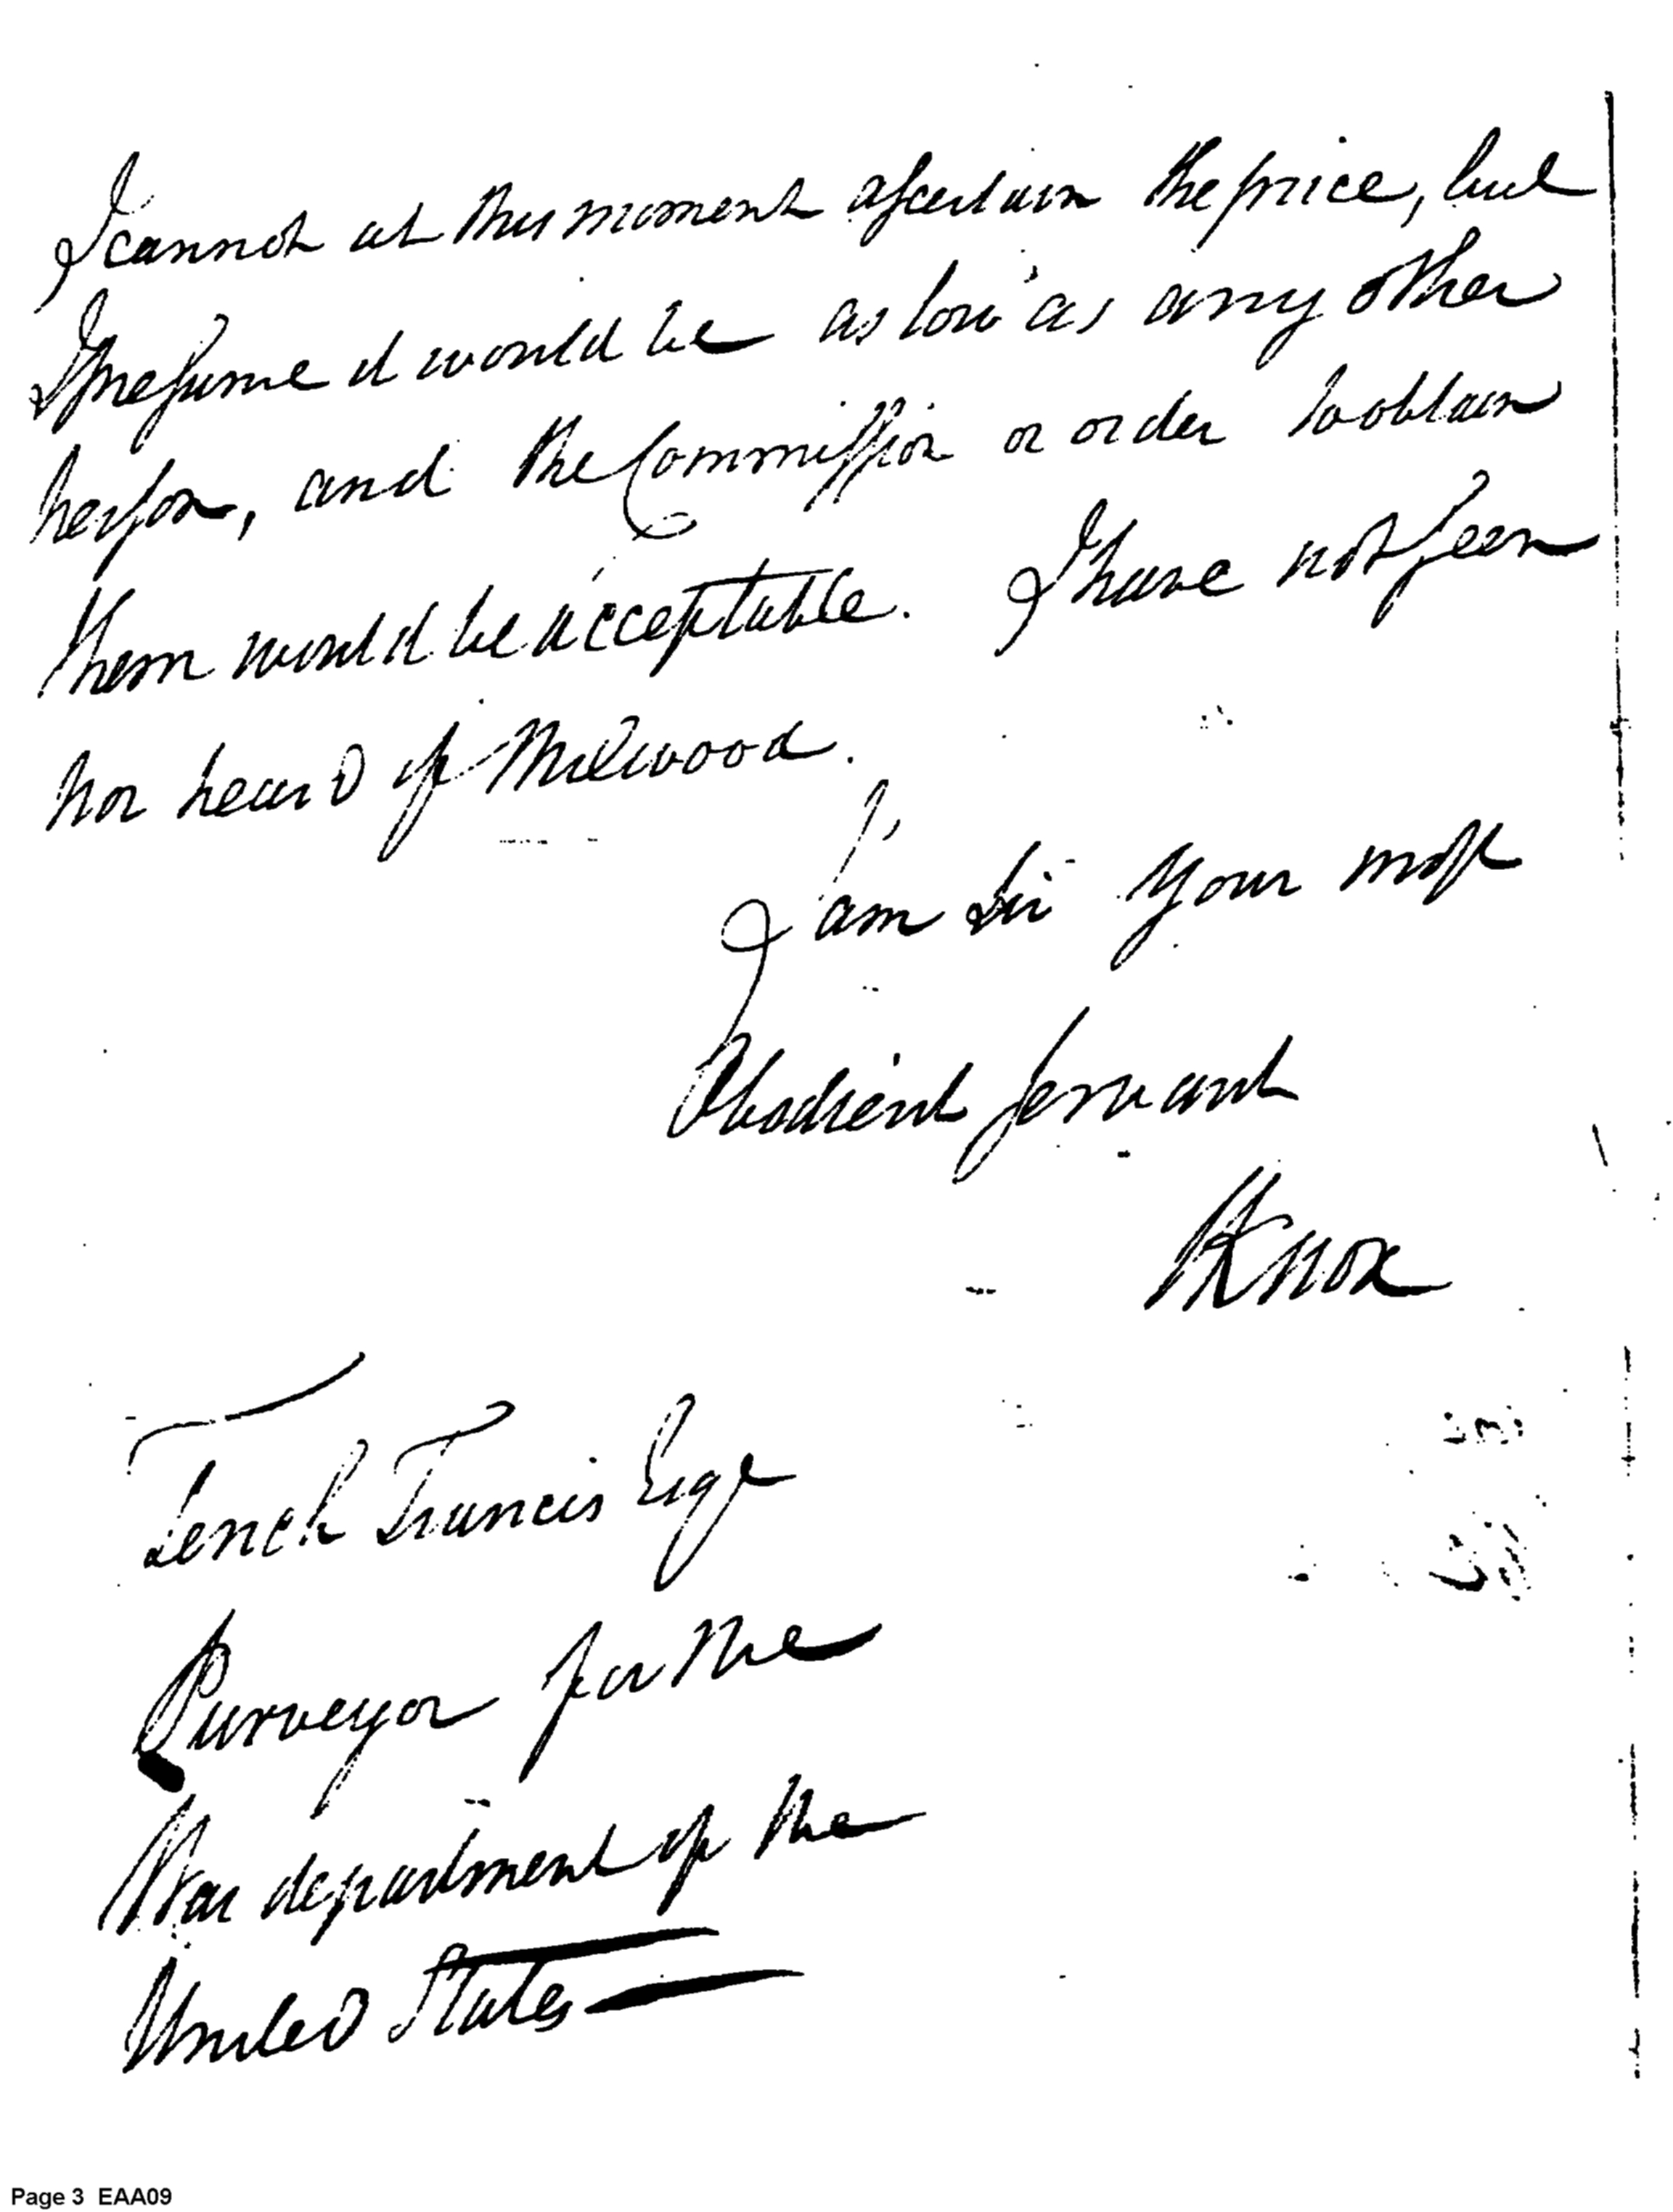 I cannot at this moment ascertain the price, but
I presume it would be as low as any other
person, and the Commission or order to obtain
them would be acceptable. I have not seen
nor heard of Milwood.
I am Sir Your most
Obedient servant
HKnox
Tench Francis Esqr
Purveyor for the
War department of the
United States
Page 3 EAA09